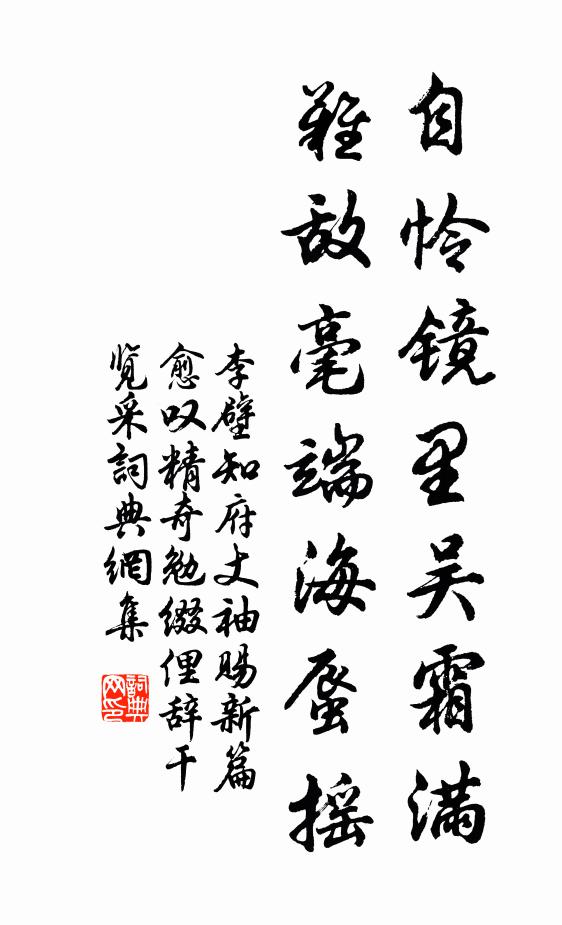 自怜镜里吴霜满
难敌毫端海蜃摇
李壁知府丈袖赐新篇
愈叹精奇勉缀俚辞干
览采詞典網集
詞典网印